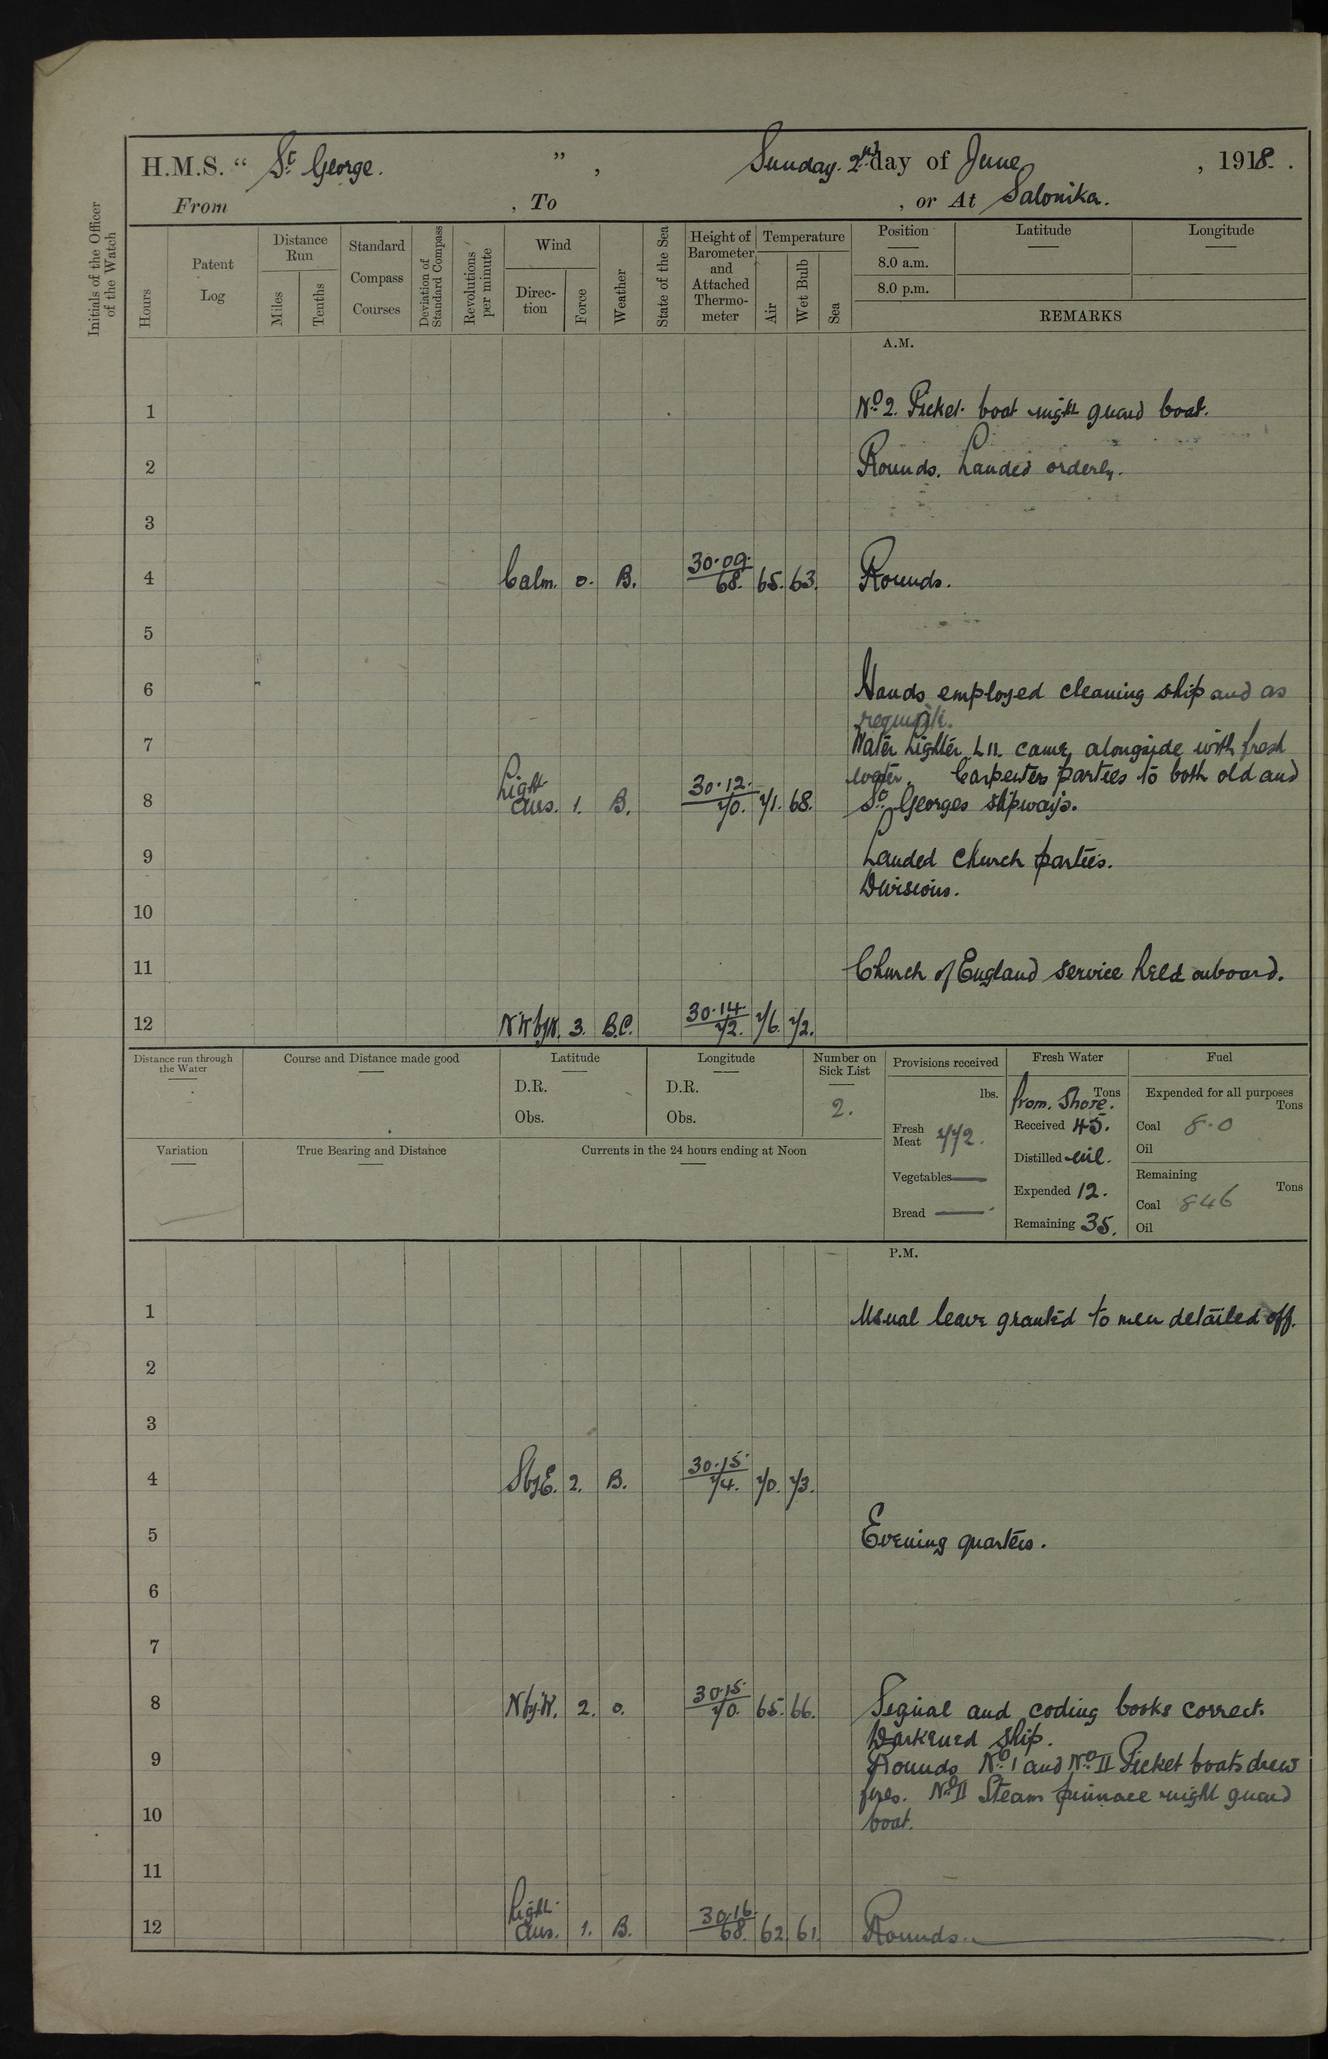 H.M.S. “ St George. ” , Sunday. 2nd day of June , 1918.
From , To , or At Salonika.
Initials of the Officer of the Watch
Hours
Patent Log
Distance Run
Miles
Tenths
Standard Compass Courses
Deviation of Standard Compass
Revolutions per minute
Wind
Direction
Force
Weather
State of the Sea
Height of Barometer and Attached Thermometer
Temperature
Air
Wet Bulb
Sea
Position Latitude Longitude
8.0 a.m.
8.0 p.m.
REMARKS
A.M.
1 No 2. Picket boat night guard boat.
2 Rounds. Landed orderly.
3
4 Calm. 0. B. 30.09. 68. 65. 63. Rounds.
5
6 Hands employed cleaning ship and as
requisite.
7 Water Lighter L11. came alongside with fresh
water. Carpenters parties to both old and
8 Light airs. 1. B. 30.12. 70. 71. 68. St Georges slipways.
9 Landed Church parties.
Divisions.
10
11 Church of England service held onboard.
12 NWbyW. 3. B.C. 30.14 72. 76. 72.
Distance run through the Water
Course and Distance made good
Latitude
D.R.
Obs.
Longitude
D.R.
Obs.
Number on Sick List
2.
Provisions received
lbs.
Fresh Meat 772.
Vegetables —
Bread —
Fresh Water
Tons
from Shore.
Received 45.
Distilled nil.
Expended 12.
Remaining 35.
Fuel
Expended for all purposes
Tons
Coal 8.0
Oil
Remaining
Tons
Coal 846
Oil
Variation
True Bearing and Distance
Currents in the 24 hours ending at Noon
P.M.
1 Usual leave granted to men detailed off.
2
3
4 SbyE. 2. B. 30.15. 74. 70. 73.
5 Evening quarters.
6
7
8 NbyW. 2. o. 30.15. 70. 65. 66. Signal and coding books correct.
Darkened ship.
9 Rounds No I and No II Picket boats drew
fires. No II Steam pinnace night guard
10 boat.
11
12 Light airs. 1. B. 30.16. 68. 62. 61. Rounds.